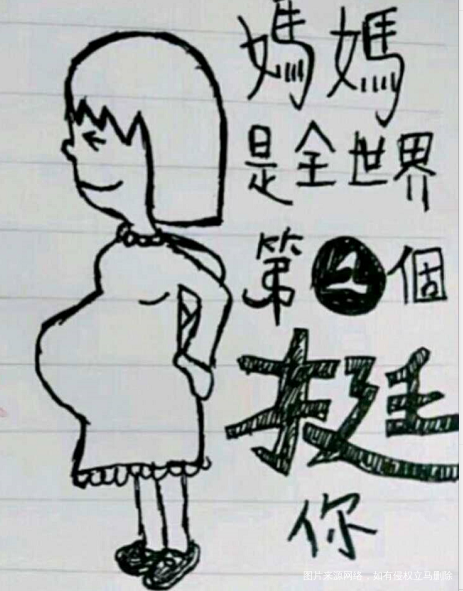 媽媽
是全世界
第一個
挺
你
图片来源网络，如有侵权立马删除